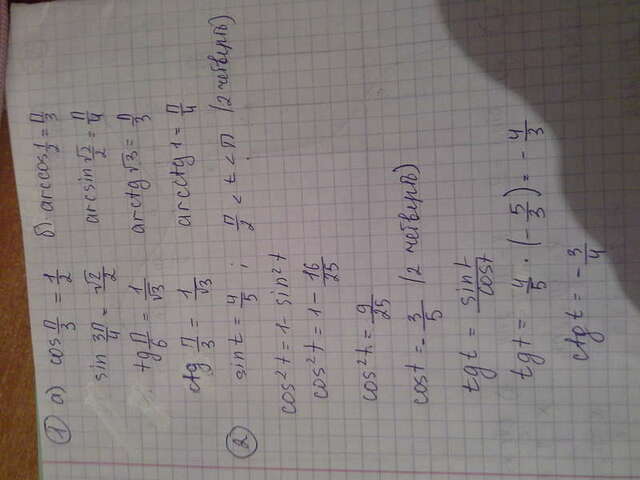 ① а) cos π/3 = 1/2   б) arccos 1/2 = π/3
sin 3π/4 = √2/2   arcsin √2/2 = π/4
tg π/6 = 1/√3   arctg √3 = π/3
ctg π/3 = 1/√3   arcctg 1 = π/4
② sin t = 4/5 ; π/2 < t < π (2 четверть)
cos²t = 1 - sin²t
cos²t = 1 - 16/25
cos²t = 9/25
cos t = - 3/5 (2 четверть)
tg t = sin t/cos t
tg t = 4/5 · (- 5/3) = - 4/3
ctg t = - 3/4